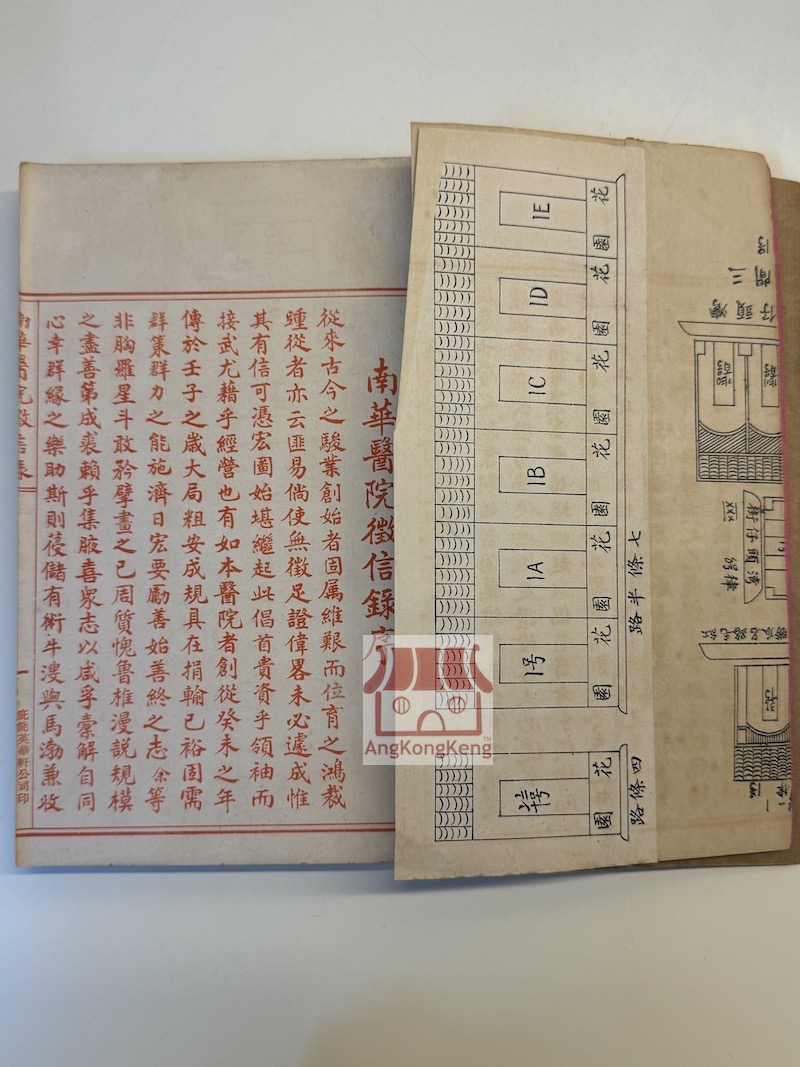 南華醫院徵信錄序
從來古今之駿業創始者固属維艱而位育之鴻裁
踵從者亦云匪易倘使無徵足證偉畧未必遽成惟
其有信可憑宏圖始堪繼起此倡首貴資乎領袖而
接武尤藉乎經營也有如本醫院者創從癸未之年
傳於壬子之歲大局粗安成規具在捐輸已裕固需
群策群力之能施濟日宏要勵善始善終之志余等
非胸羅星斗敢矜擘畫之已周質愧魯椎漫説規模
之盡善第成裘賴乎集腋喜衆志以咸孚橐解自同
心幸群緣之樂助斯則葠儲有術牛溲與馬渤兼收
南華醫院徵信錄
一
庇能英華軒公司印
花園
1E
花園
1D
花園
1C
花園
1B
花園
1A
花園
1号
花園
七條半路
四條路
三間
灣頭仔
灣頭仔街
AngKongKeng™